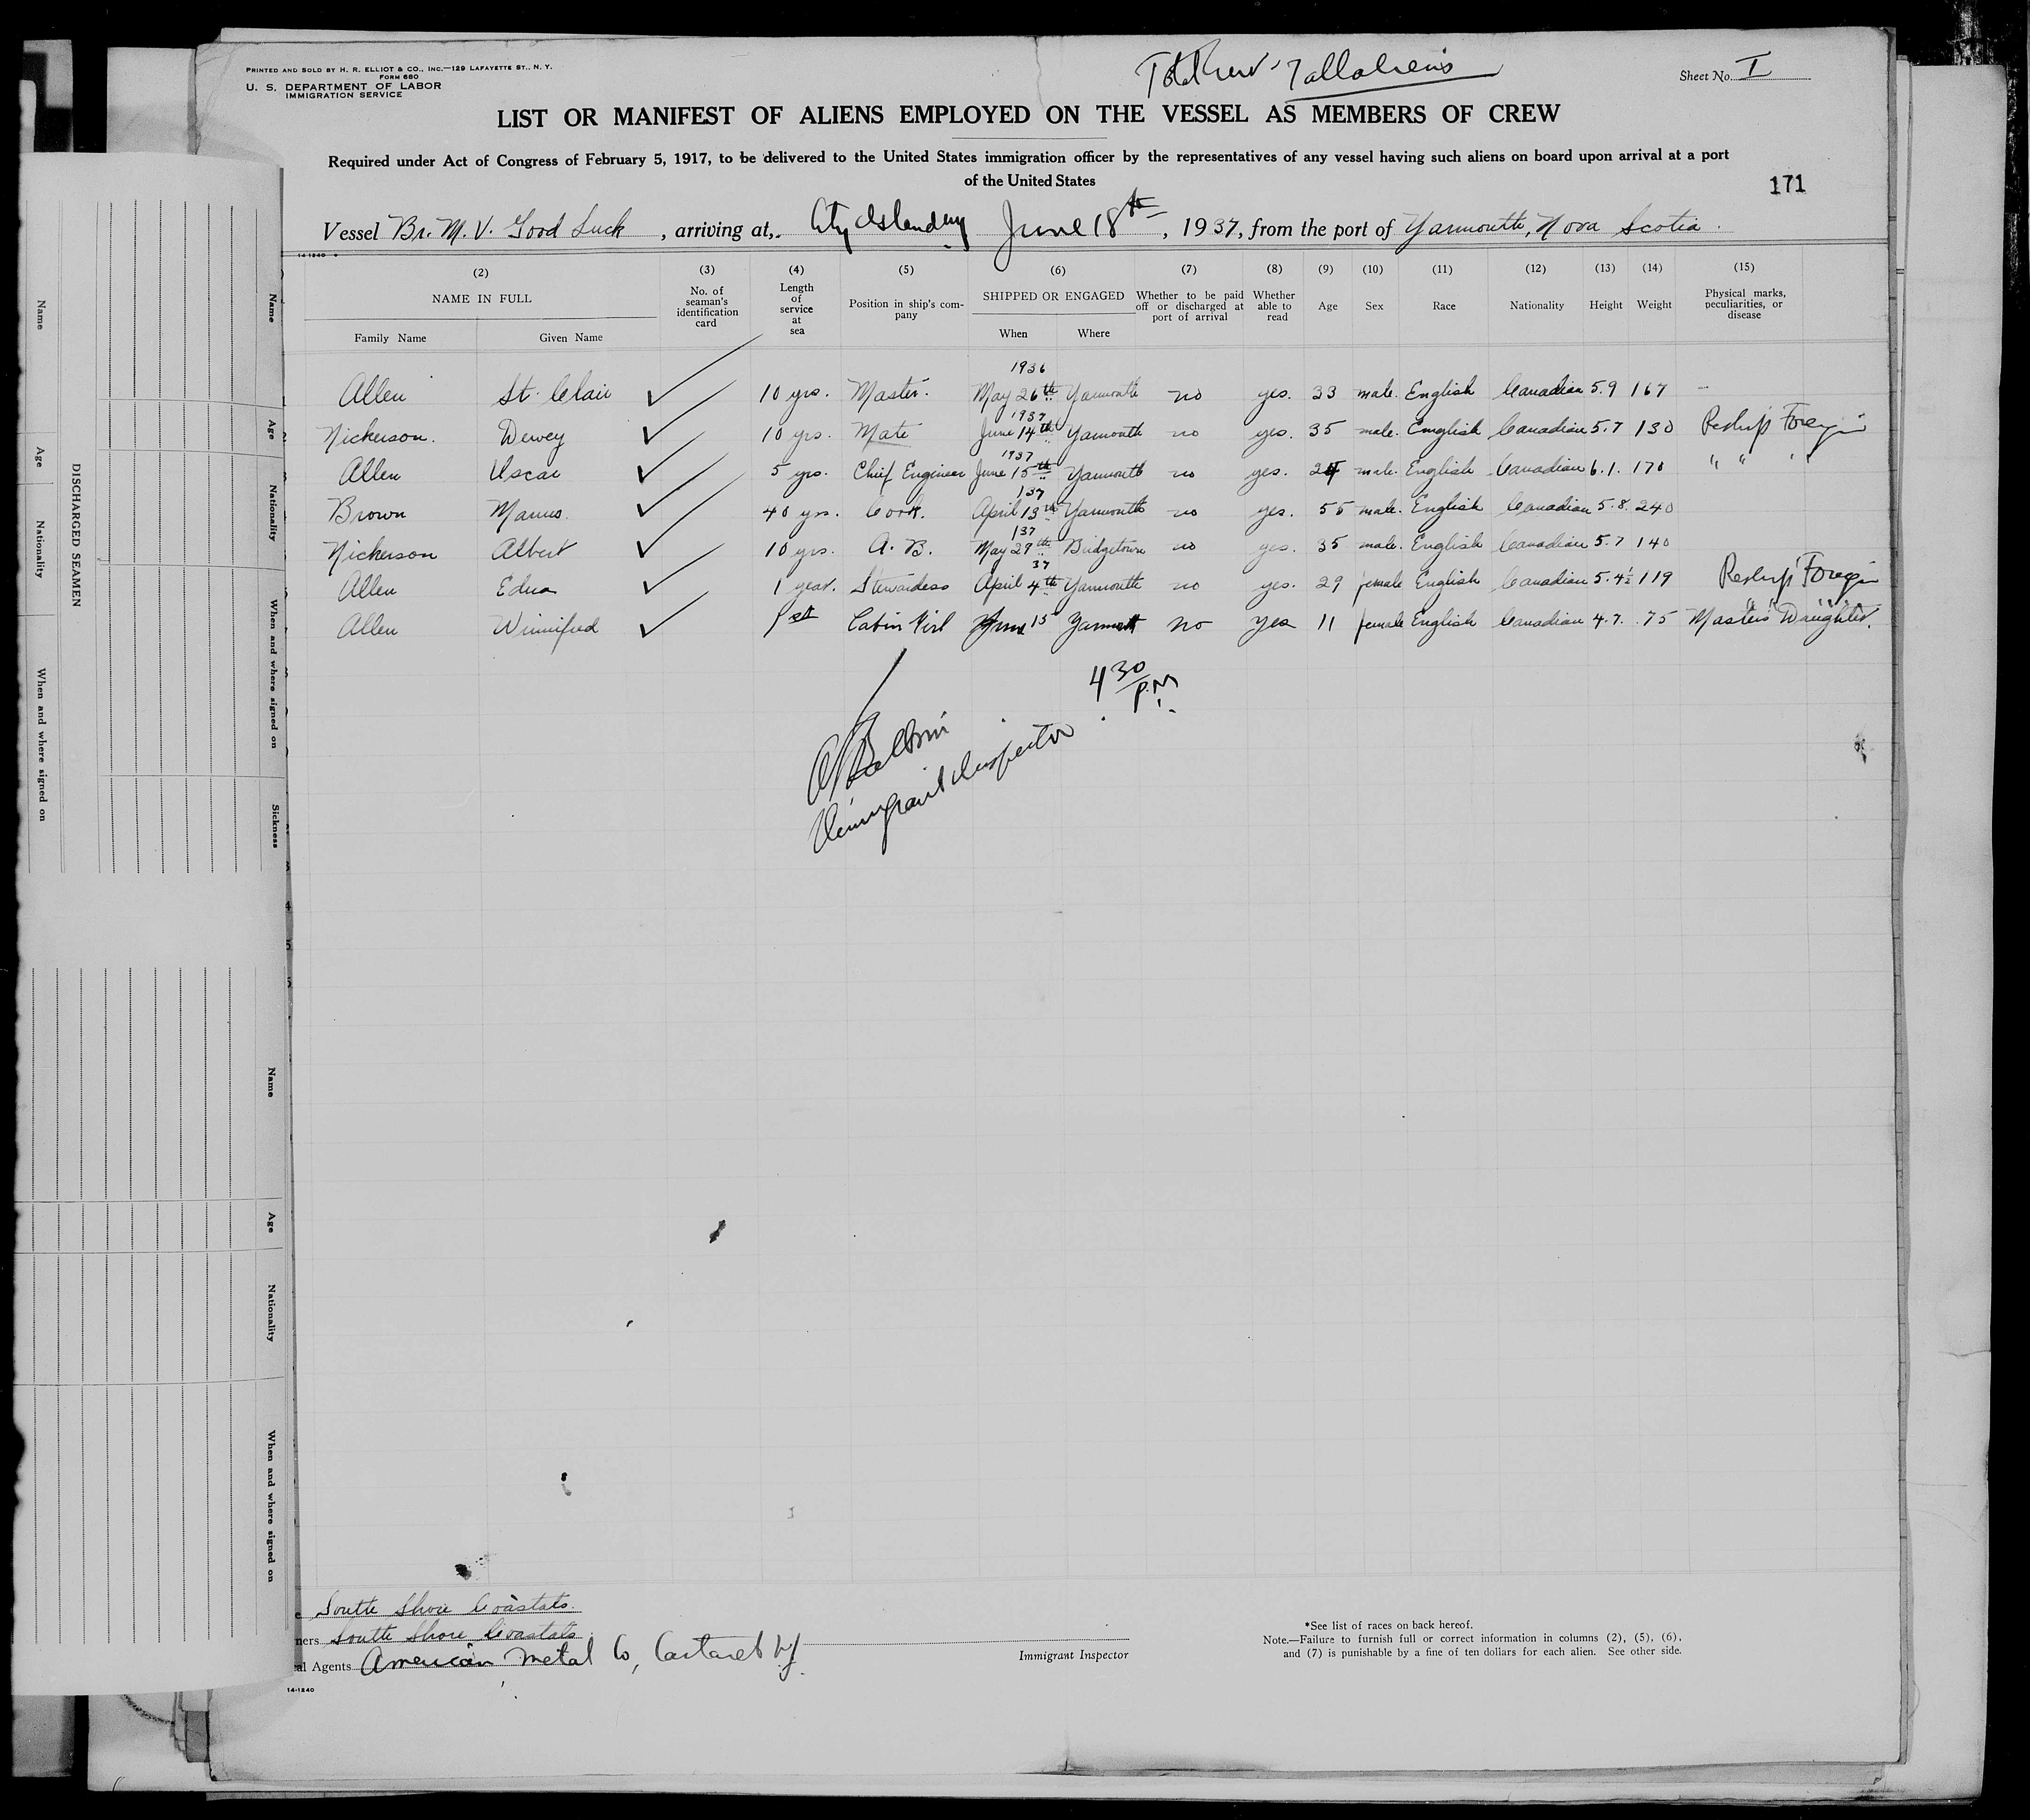 PRINTED AND SOLD BY H. R. ELLIOT & CO., INC.—129 LAFAYETTE ST., N. Y.
FORM 680
U. S. DEPARTMENT OF LABOR
IMMIGRATION SERVICE
Total Crew 7 all aliens
Sheet No. I
LIST OR MANIFEST OF ALIENS EMPLOYED ON THE VESSEL AS MEMBERS OF CREW
Required under Act of Congress of February 5, 1917, to be delivered to the United States immigration officer by the representatives of any vessel having such aliens on board upon arrival at a port
of the United States
171
Vessel Br. M. V. Good Luck, arriving at, City Island ny June 18th, 1937, from the port of Yarmouth, Nova Scotia.
14-1240
(2) (3) (4) (5) (6) (7) (8) (9) (10) (11) (12) (13) (14) (15)
NAME IN FULL No. of seaman's identification card Length of service at sea Position in ship's company SHIPPED OR ENGAGED Whether to be paid off or discharged at port of arrival Whether able to read Age Sex Race Nationality Height Weight Physical marks, peculiarities, or disease
Family Name Given Name When Where
1936
Allen St. Clair 10 yrs. Master. May 26th Yarmouth no yes. 33 male. English Canadian 5.9 167 —
1937
Nickerson. Dewey 10 yrs. Mate June 14th Yarmouth no yes. 35 male. English Canadian 5.7 130 Reship Foreign
1937
Allen Oscar 5 yrs. Chief Engineer June 15th Yarmouth no yes. 24 male. English Canadian 6.1. 170 " " " "
137
Brown Manus. 40 yrs. Cook. April 13th Yarmouth no yes. 55 male. English Canadian 5.8. 240
137
Nickerson Albert 10 yrs. A. B. May 29th Bridgetown no yes. 35 male. English Canadian 5.7 140
37
Allen Edna 1 year. Stewardess April 4th Yarmouth no yes. 29 female English Canadian 5.4½ 119 Reship Foreign
Allen Winnifred 1st Cabin Girl June 15 Yarmouth no yes 11 female English Canadian 4.7. 75 Masters Daughter.
4 30 P.M.
Immigrant Inspector
South Shore Coastals.
ners South Shore Coastals
al Agents American Metal Co, Carteret NJ.
Immigrant Inspector
14-1240
*See list of races on back hereof.
Note.—Failure to furnish full or correct information in columns (2), (5), (6),
and (7) is punishable by a fine of ten dollars for each alien. See other side.
DISCHARGED SEAMEN
Name
Age
Nationality
When and where signed on
Name
Age
Nationality
When and where signed on
Sickness
Name
Age
Nationality
When and where signed on